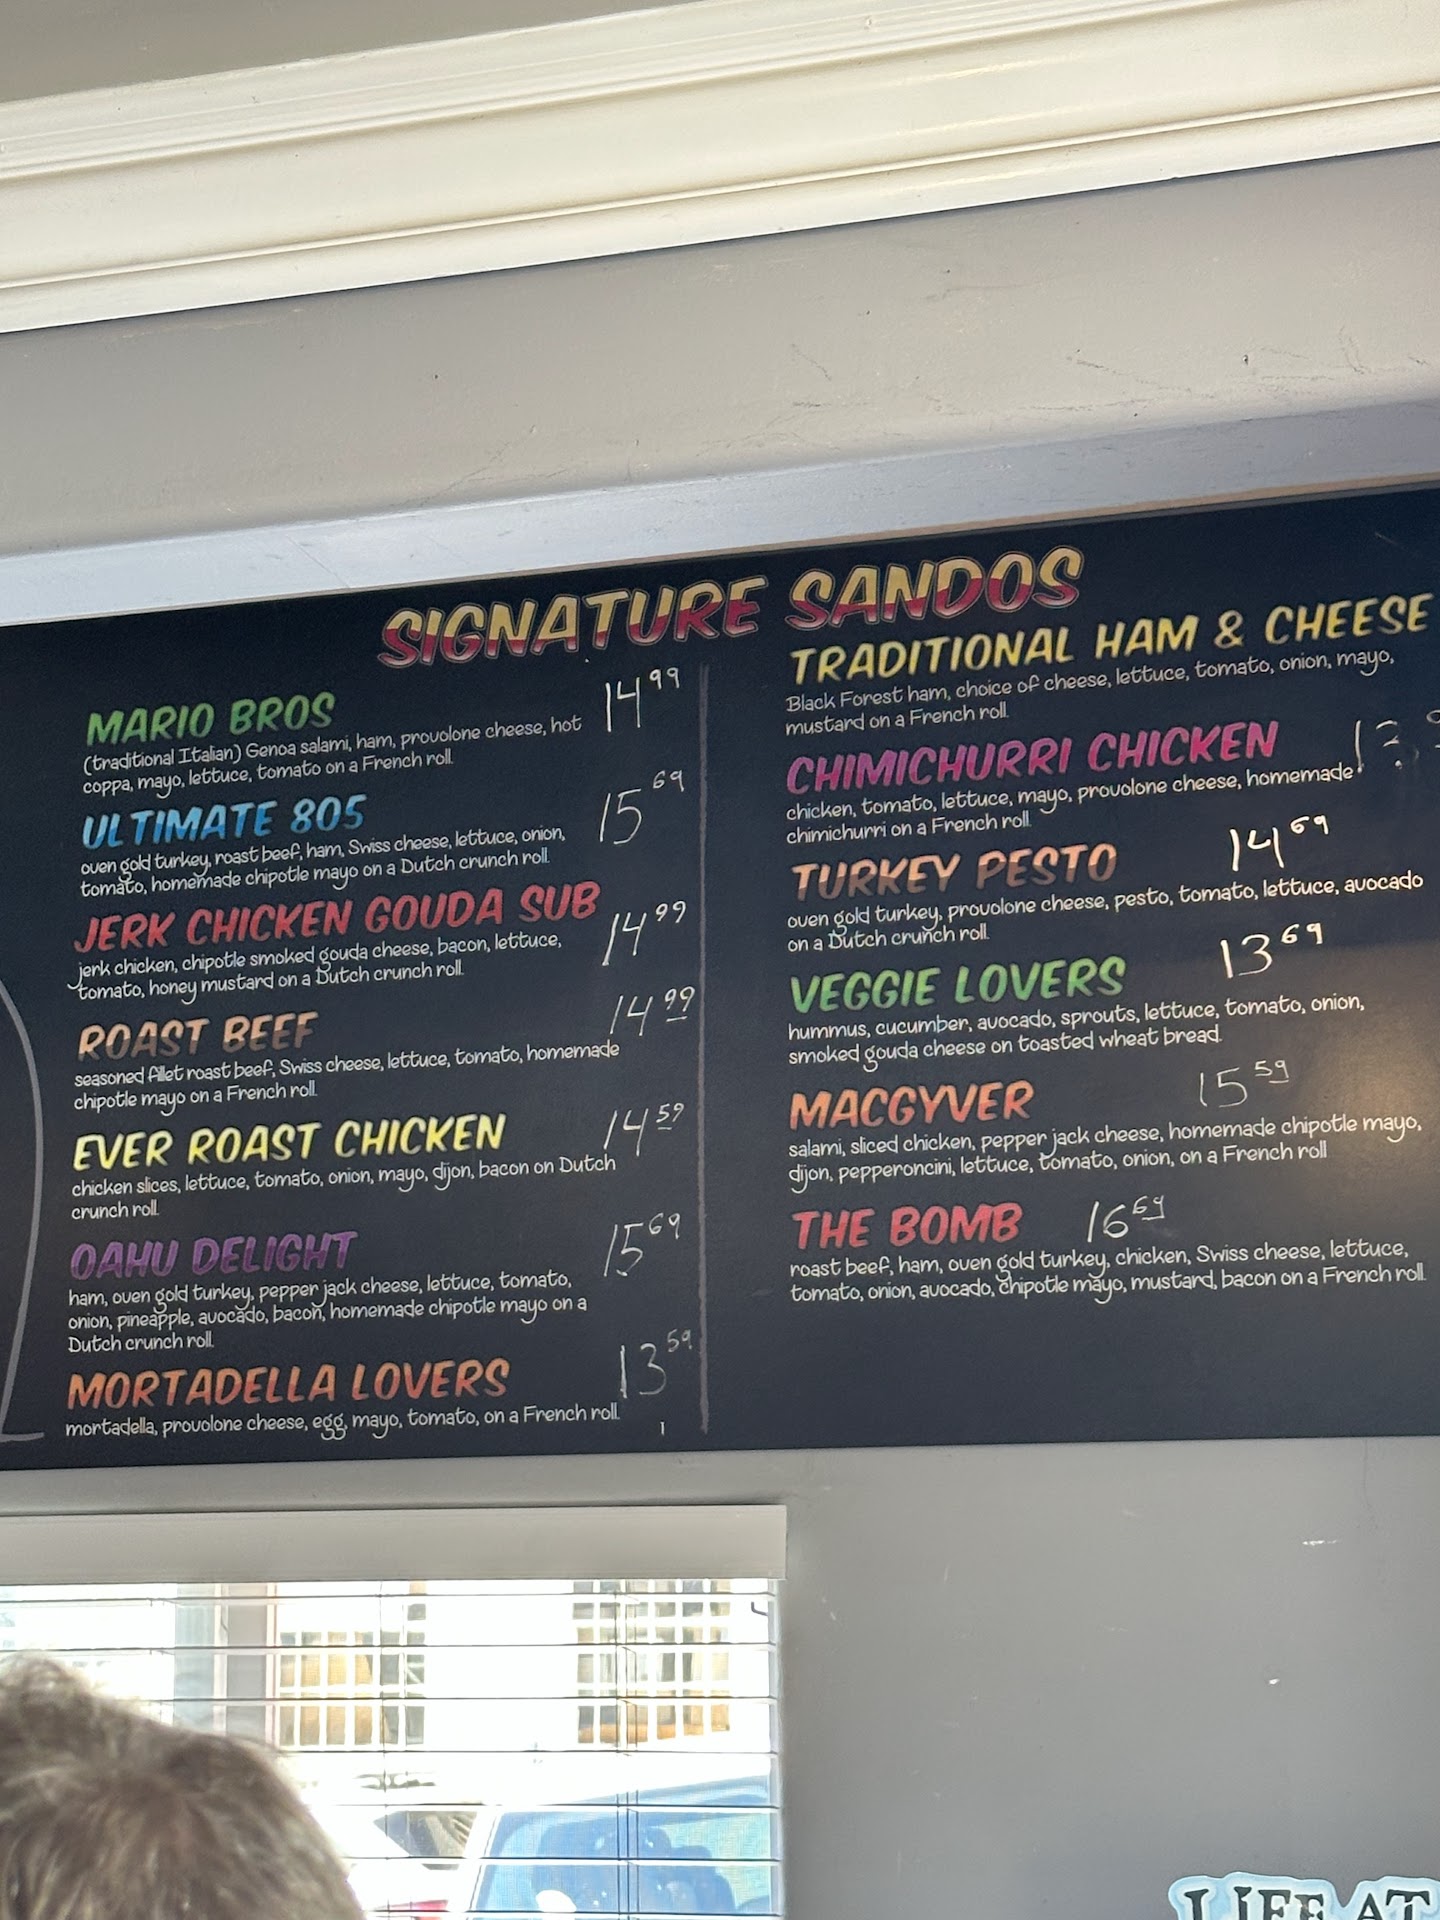 SIGNATURE SANDOS
MARIO BROS 14 99
(traditional Italian) Genoa salami, ham, provolone cheese, hot
coppa, mayo, lettuce, tomato on a French roll.
ULTIMATE 805 15 69
oven gold turkey, roast beef, ham, Swiss cheese, lettuce, onion,
tomato, homemade chipotle mayo on a Dutch crunch roll.
JERK CHICKEN GOUDA SUB 14 99
jerk chicken, chipotle smoked gouda cheese, bacon, lettuce,
tomato, honey mustard on a Dutch crunch roll.
ROAST BEEF 14 99
seasoned fillet roast beef, Swiss cheese, lettuce, tomato, homemade
chipotle mayo on a French roll.
EVER ROAST CHICKEN 14 59
chicken slices, lettuce, tomato, onion, mayo, dijon, bacon on Dutch
crunch roll.
OAHU DELIGHT 15 69
ham, oven gold turkey, pepper jack cheese, lettuce, tomato,
onion, pineapple, avocado, bacon, homemade chipotle mayo on a
Dutch crunch roll.
MORTADELLA LOVERS 13 59
mortadella, provolone cheese, egg, mayo, tomato, on a French roll.
TRADITIONAL HAM & CHEESE
Black Forest ham, choice of cheese, lettuce, tomato, onion, mayo,
mustard on a French roll.
CHIMICHURRI CHICKEN
chicken, tomato, lettuce, mayo, provolone cheese, homemade
chimichurri on a French roll.
TURKEY PESTO 14 69
oven gold turkey, provolone cheese, pesto, tomato, lettuce, avocado
on a Dutch crunch roll.
VEGGIE LOVERS 13 69
hummus, cucumber, avocado, sprouts, lettuce, tomato, onion,
smoked gouda cheese on toasted wheat bread.
MACGYVER 15 59
salami, sliced chicken, pepper jack cheese, homemade chipotle mayo,
dijon, pepperoncini, lettuce, tomato, onion, on a French roll
THE BOMB 16 69
roast beef, ham, oven gold turkey, chicken, Swiss cheese, lettuce,
tomato, onion, avocado, chipotle mayo, mustard, bacon on a French roll.
LIFE AT